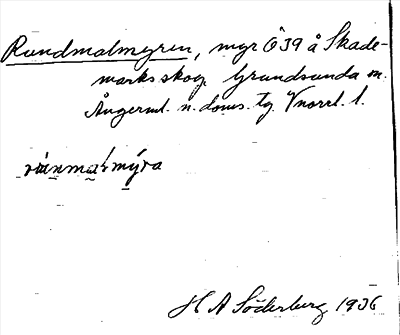 Rundmalmyren, myr Ö 39 å Skade-
marks skog Grundsunda sn.
Ångerml. n. doms. tg. Vnorrl. l.
myra
H A Söderberg 1936